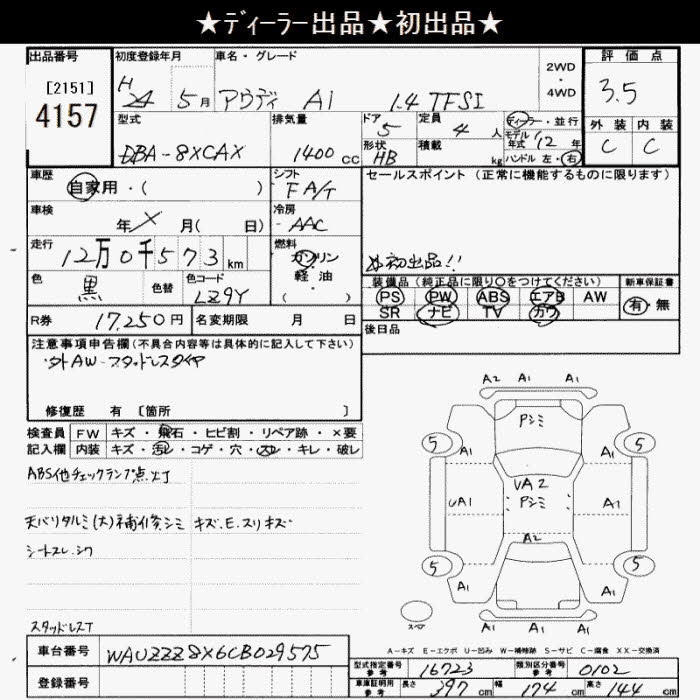 ★ディーラー出品★初出品★
出品番号
[2151]
4157
初度登録年月
H
24 5月
車名・グレード
アウディ A1 1.4 TFSI
2WD
・
4WD
評価点
3.5
外装 内装
C C
型式
DBA-8XCAX
排気量
1400 cc
ドア
5
定員
4 人
形状
HB
積載
kg
ディーラー・並行
モデル年式 12年
ハンドル 左・右
車歴
自家用・( )
シフト
F A/T
車検
年 月( 日)
冷房
AAC
セールスポイント (正常に機能するものに限ります)
初出品!!
走行
12万0千573km
燃料
ガソリン
軽・油
( )
色
黒
色替
色コード
LZ9Y
装備品 (純正品に限り○をつけてください)
PS PW ABS エアB AW
SR ナビ TV カワ
新車保証書
有・無
R券
17,250円
名変期限 月 日
後日品
注意事項申告欄(不具合内容等は具体的に記入して下さい)
外AW-スタッドレスタイヤ
修復歴 有 [箇所 ]
検査員
記入欄
FW キズ・飛石・ヒビ割・リペア跡・×要
内装 キズ・汚レ・コゲ・穴・スレ・キレ・破レ
ABS他チェックランプ点灯
天バリタルミ(大)補修、シミ キズ.E.スリキズ
シートスレ.シワ
スタッドレスT
A2 A1 A1
Pシミ
5 A1 A1 5
UA2
Pシミ
UA1 A1
A2
5 A1 A1 5
スペア
A1 A1 A1
A-キズ E-エクボ U-凹み W-補修跡 S-サビ C-腐食 XX-交換済
車台番号
WAUZZZ8X6CB029575
登録番号
型式指定番号
参考
16723
類別区分番号
参考
0102
車庫証明用
参考
長さ 397cm 幅 174cm 高さ 144cm